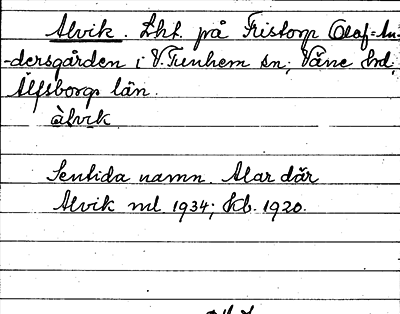 Alvik. Lht. på Fristorp Olof=An-
-dersgården i V. Tunhem sn; Väne hd;
Älfsborgs län.
àlvik
Sentida namn. Alar där
Alvik ml. 1934; Kb. 1920.